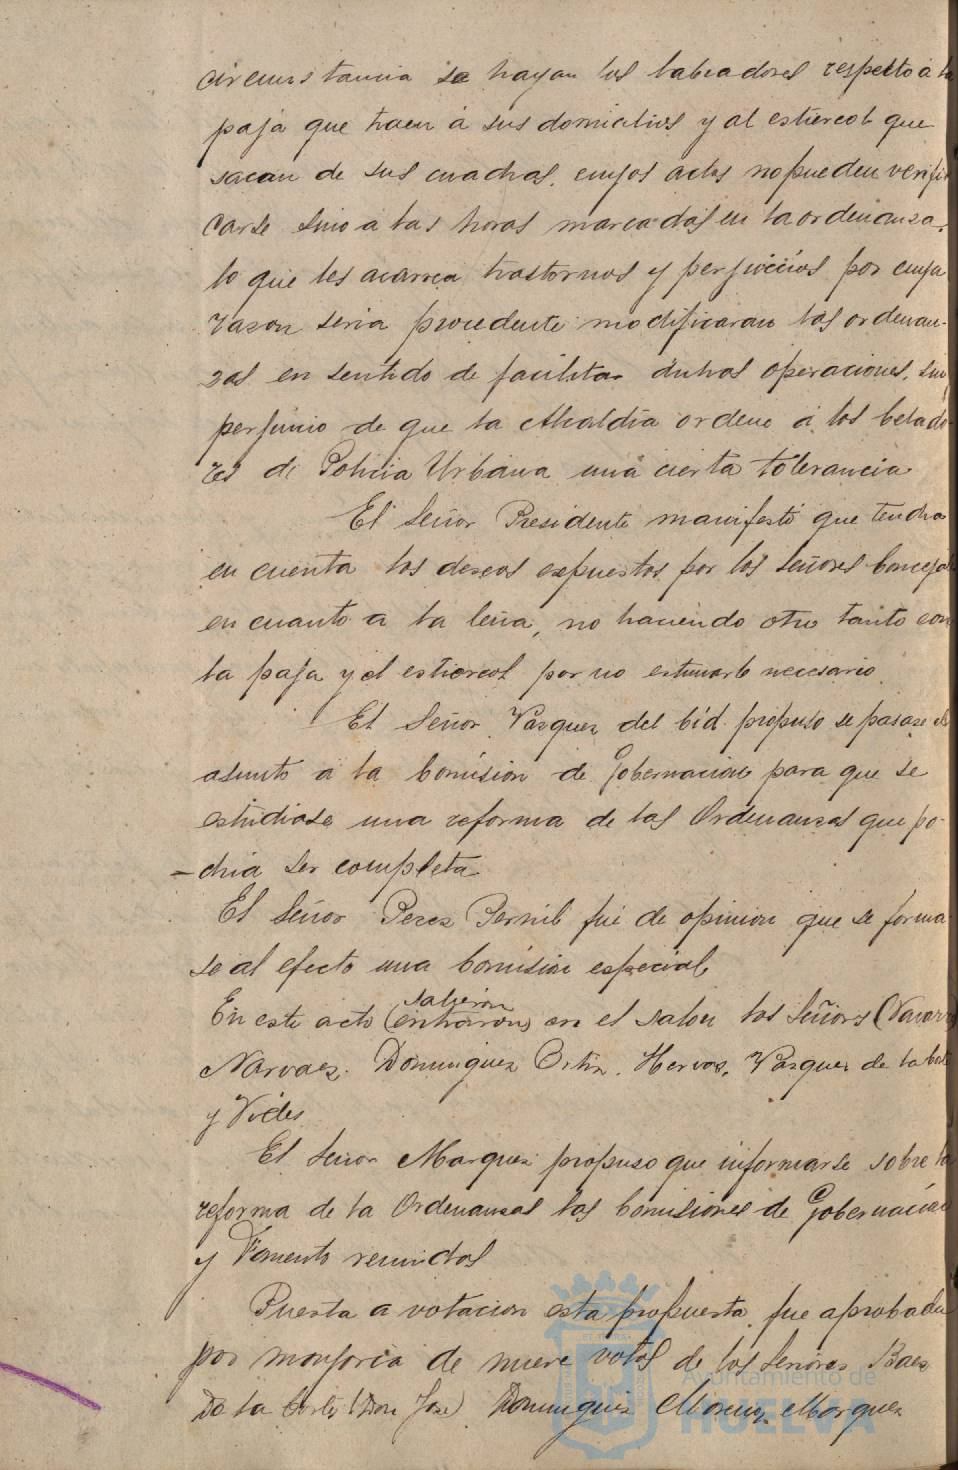 circunstancia se hayan los labradores respecto a la
paja que traen á sus domicilios y al estiercol que
sacan de sus cuadras, cuyos actos no pueden verifi
carse sino a las horas marcadas en la ordenanza,
lo que les acarrea trastornos y perjuicios por cuya
razon seria procedente modificaran las ordenan-
zas en sentido de facilitar dichas operaciones, sin
perjuicio de que la Alcaldía ordene á los belado
res de Policia Urbana una cierta tolerancia
El Señor Presidente manifestó que tendra
en cuenta los deseos espuestos por los Señores Concejales
en cuanto a la leña, no haciendo otro tanto con
la paja y el estiercol por no estimarlo necesario
El Señor Vazquez del Cid propuso se pasase el
asunto a la Comision de Gobernacion para que se
estudiase una reforma de las Ordenanzas que po-
dria ser completa
El Señor Perez Pernil fué de opinion que se forma
se al efecto una Comision especial
salieron
En este acto (entraron) en el salon los Señores (Navarro
Narvaez. Dominguez Ortiz. Hervas. Vazquez de la
y Vides
El Señor Marquez propuso que informarse sobre la
reforma de la Ordenanzas las Comisiones de Gobernación
y Fomento reunidas
Puesta a votacion esta propuesta fue aprobada
por mayoria de nueve votos de los Señores Baez
De la Corte (Don José) Dominguez Moreno, Marquez
Ayuntamiento de
HUELVA